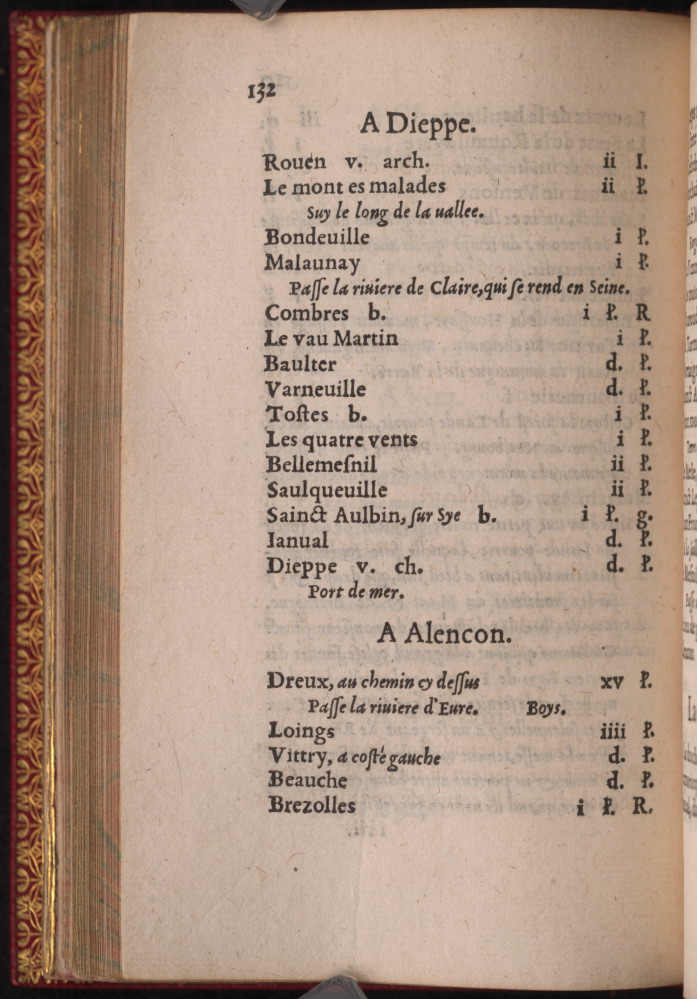 132
A Dieppe.
Rouen v. arch. ii I.
Le mont es malades ii P.
Suy le long de la uallee.
Bondeuille i P.
Malaunay i P.
Paſſe la riuiere de Claire, qui ſe rend en Seine.
Combres b. i P. R
Le vau Martin i P.
Baulter d. P.
Varneuille d. P.
Toſtes b. i P.
Les quatre vents i P.
Bellemeſnil ii P.
Saulqueuille ii P.
Sainct Aulbin, ſur Sye b. i P. g.
Ianual d. P.
Dieppe v. ch. d. P.
Port de mer.
A Alencon.
Dreux, au chemin cy deſſus xv P.
Paſſe la riuiere d'Eure. Boys.
Loings iiii P.
Vittry, a coſté gauche d. P.
Beauche d. P.
Brezolles i P. R.